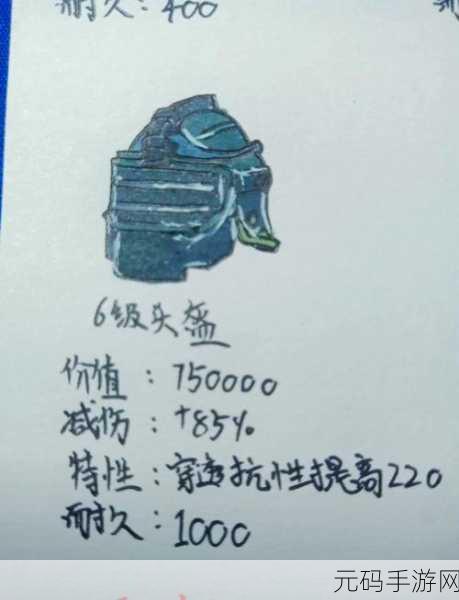 耐久：400
6级头盔
价值：750000
减伤：+85%
特性：穿透抗性提高220
耐久：1000
元码手游网